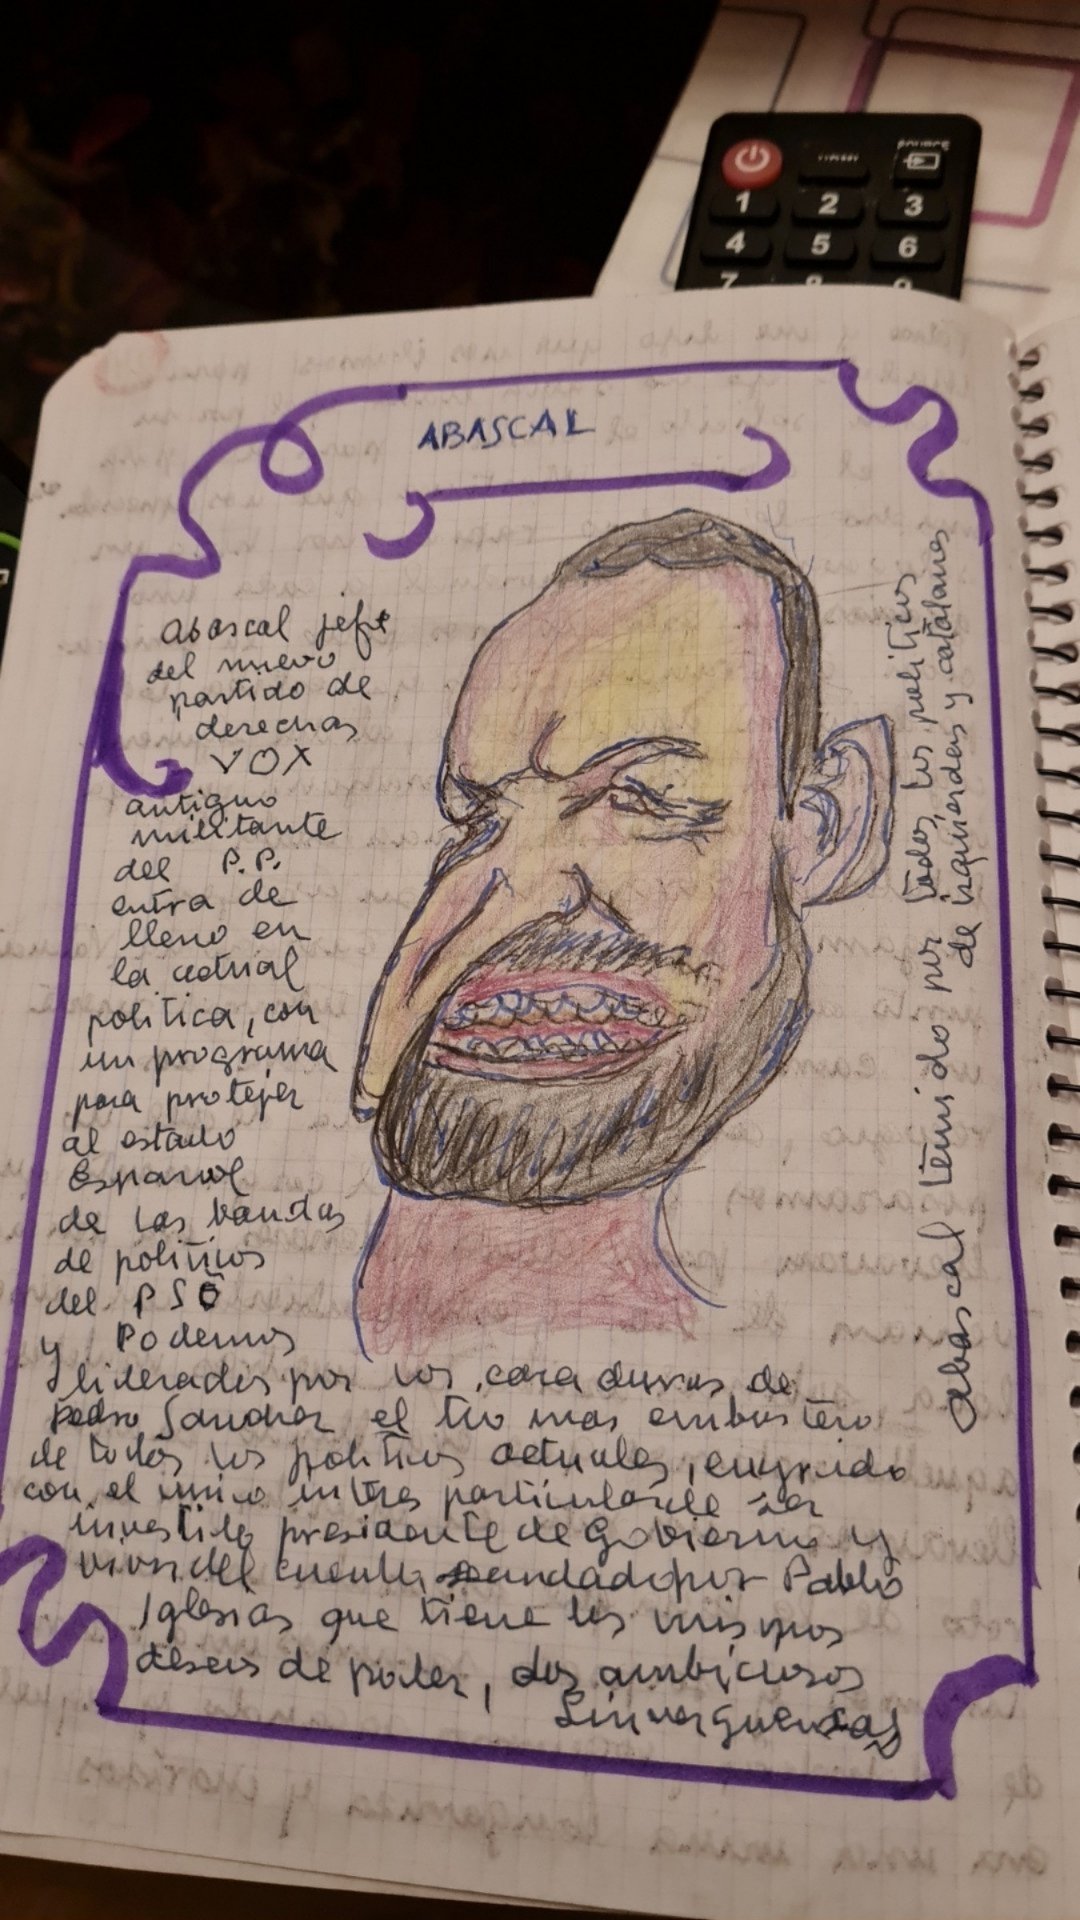 SOURCE
1 2 3
4 5 6
7 8 9
ABASCAL
Abascal jefe
del nuevo
partido de
derechas
VOX
antiguo
militante
del P.P.
entra de
lleno en
la actual
politica, con
un programa
para protejer
al estado
Español
de las bandas
de politicos
del PSO
y Podemos
liderados por los cara duras de
Pedro Sanchez el tio mas embustero
de todos los politicos actuales, engreido
con el unico interes particular de ser
investido presidente de Gobierno y
vivir del cuento mandado por Pablo
Iglesias que tiene los mismos
deseos de poder, dos ambiciosos
Sinverguenzas
Abascal temido por todos los politicos
de izquierdas y catalanes